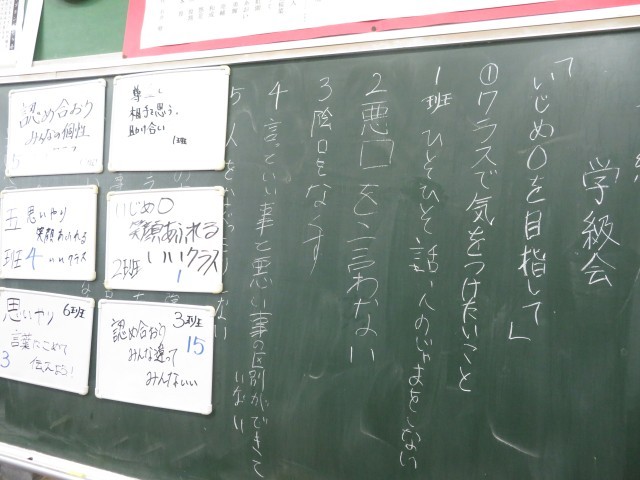 学級会
「いじめ0を目指して」
①クラスで気をつけたいこと
1班 ひとつひとつ話し人のじゃまをしない
2悪口を言わない
3陰口をなくす
4 言っといい事と悪い事の区別ができて
いない
5 人を
尊
相手を思う、
助け合い
1班
認め合おう
みんなの個性
いじめ0
笑顔あふれる
いいクラス
2班
1
五班
思いやり
笑顔あふれる
いいクラス
4
3班
認め合おう
みんな違って
みんないい
15
思いやり 6班
言葉にこめて
伝えよう!
3